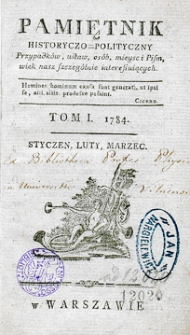 PAMIĘTNIK
HISTORYCZO=POLITYCZNY
Przypadków, ustaw, osób, mieysc i Pism,
wiek nasz szczegulnie interesuiących.
Homines hominum causa sunt generati, ut ipsi
se, alii aliis prodesse possint.
CICERO.
TOM I. 1784.
STYCZEN, LUTY, MARZEC.
Ex Bibliotheca
12020
w WARSZAWIE